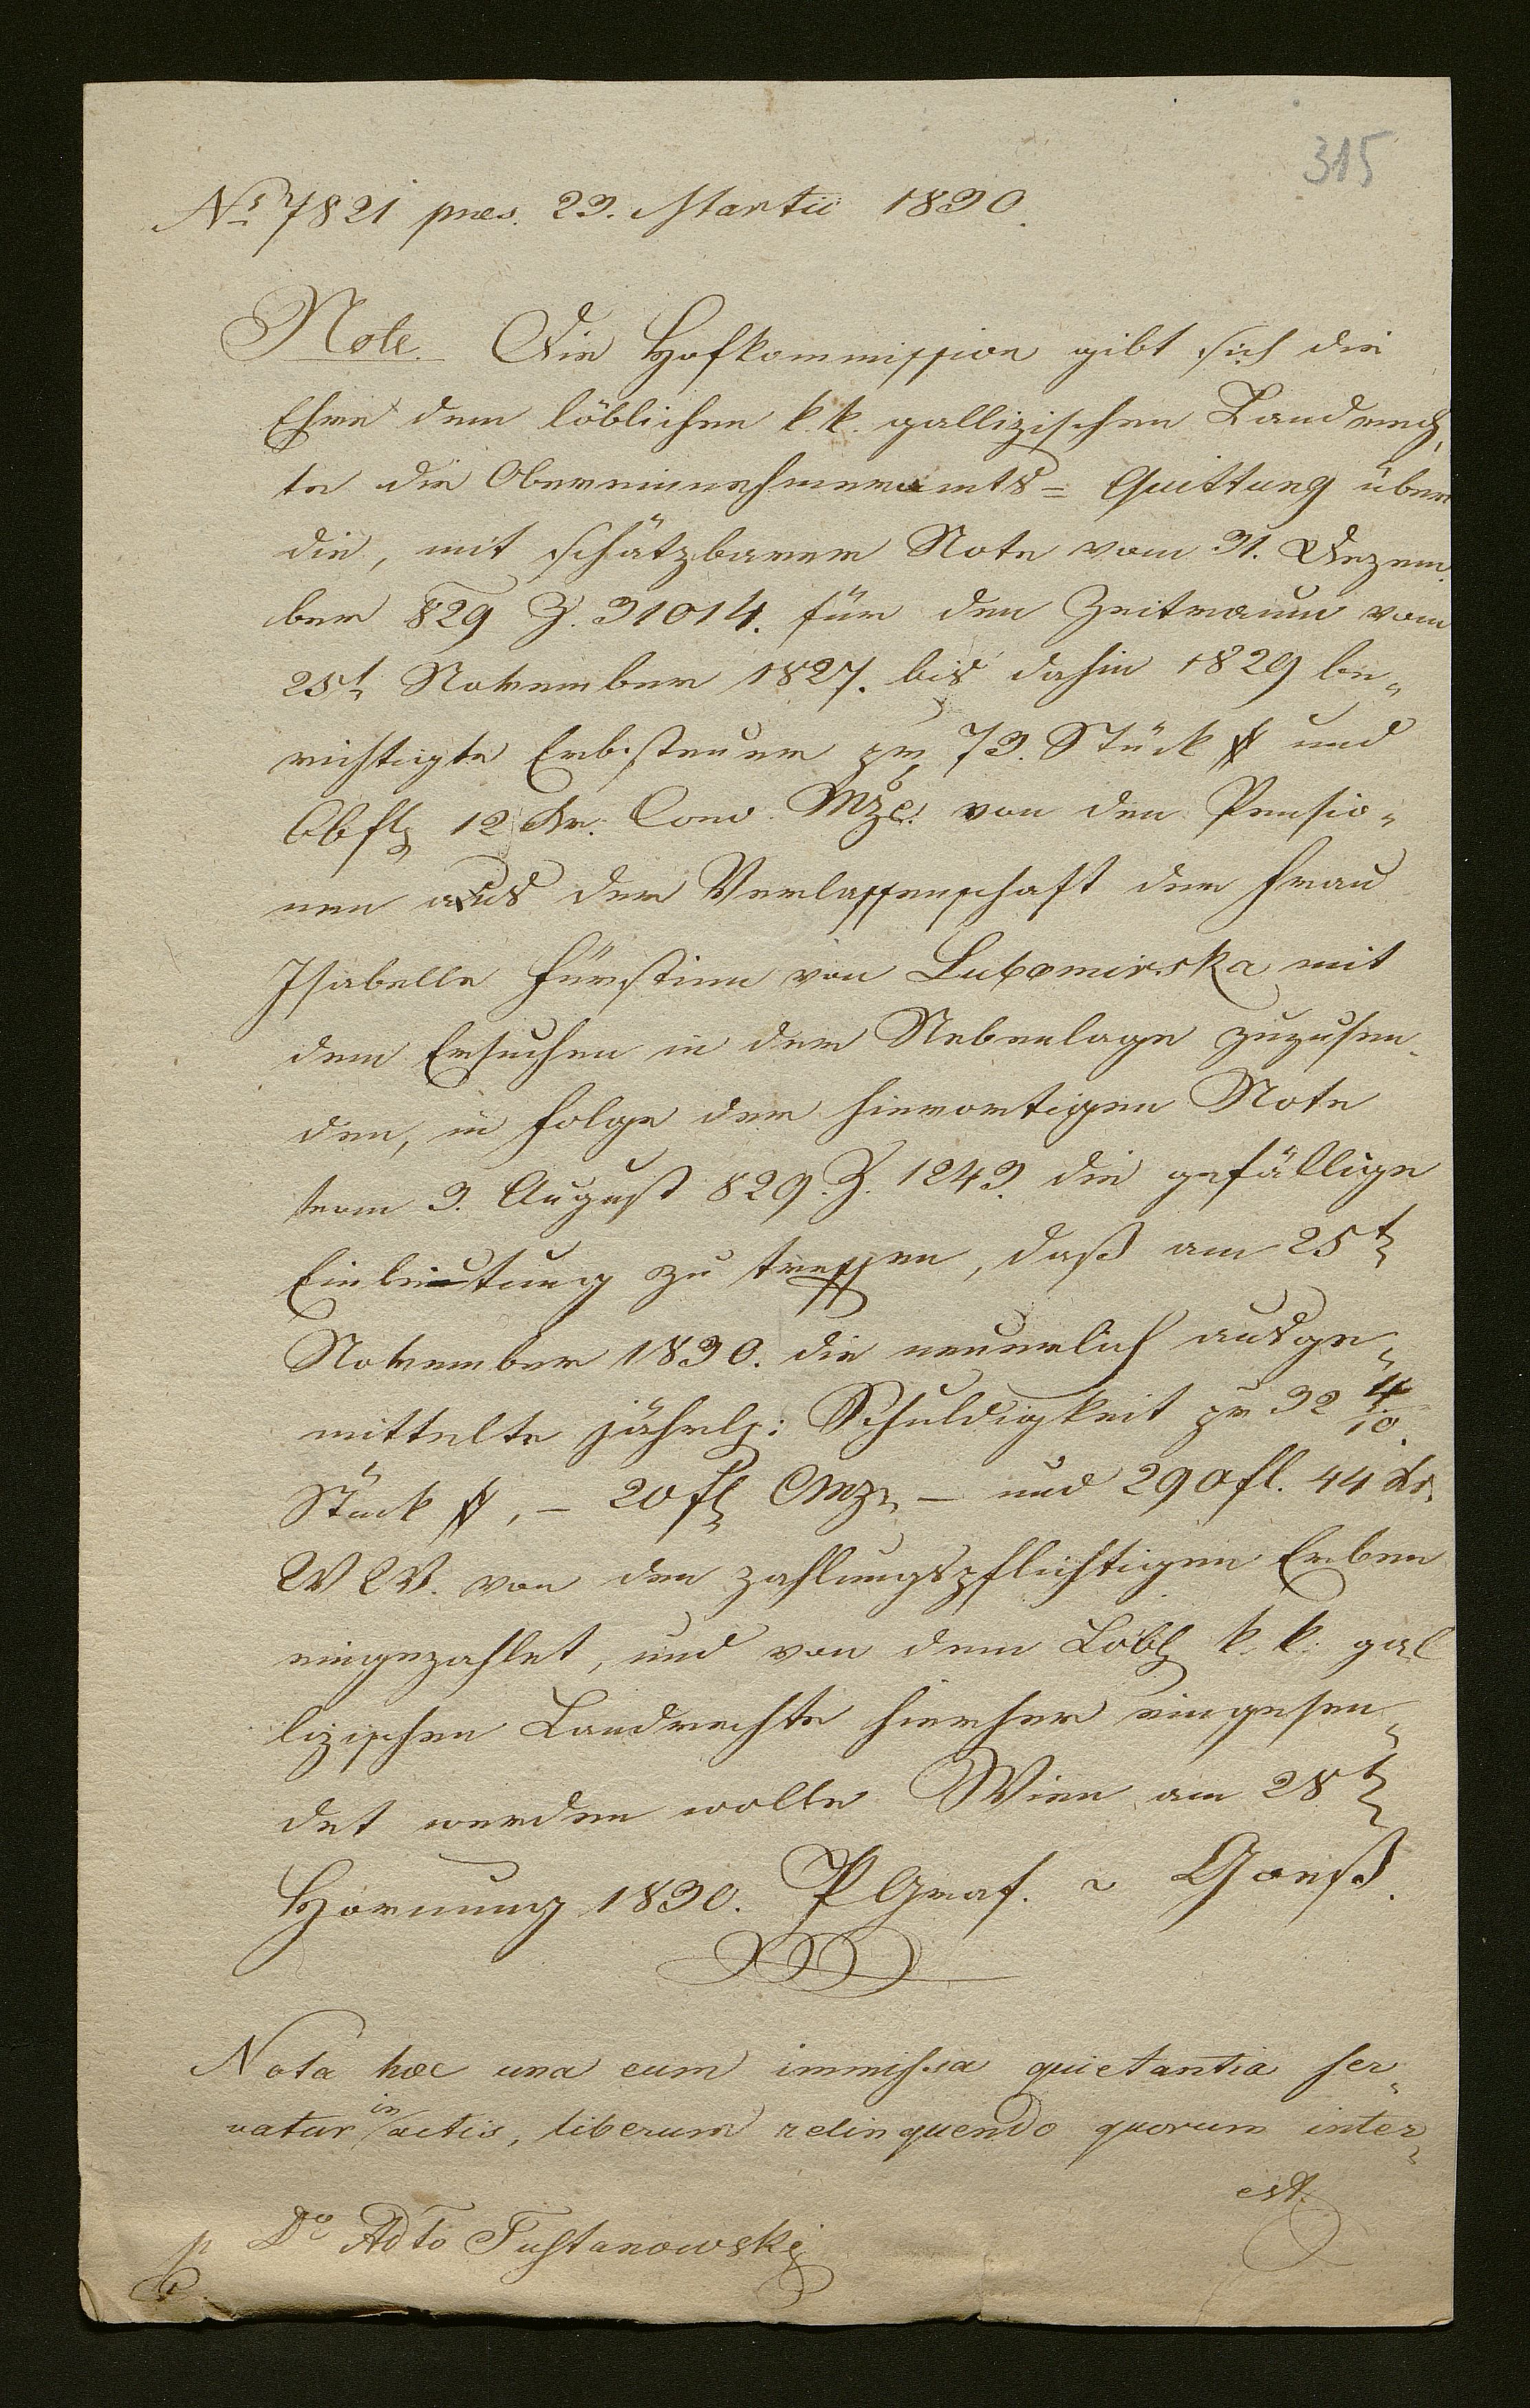 315
No 7821 praes. 23. Martii 1830.
Note. Die Hofkommission gibt sich die
Ehre dem löblichen k. k. gallizischen Landrech,
te die Obereinnehmeramts= Quittung über
die, mit schätzbarer Note vom 31. Dezem.
ber 829 Z. 31014. für den Zeitraum vom
25t November 1827. bis dahin 1829 be„
richtigte Erbsteuer pr 73. Stück # und
12 kr. Conv. Mze. von den Pensio„
nen aus der Verlassenschaft der Frau
Isabella Fürstinn von Lubomirska mit
dem Ersuchen in der Nebenlage zuzusen„
den, in Folge der hierortigen Note
vom 3. August 829. Z. 1243. die gefällige
Einleitung zu treffen, daß am 25t
November 1830. die neuerlich ausge„
mittelte jährl: Schuldigkeit pr 32 4/10.
Stück #, – 20 fl CMz – und 290 fl. 44 kr.
WW. von den zahlungspflichtigen Erben
eingezahlet, und von dem Löbl k. k. gal
lizischen Landrechte hierher eingesen„
det werden wolle Wien am 28t
Hornung 1830. P Graf. v Goëß.
Nota hac una cum immissa quietantia ser„
vatur in actis, liberum relinquendo quorum inter„
est.
Do Adto Tustanowski